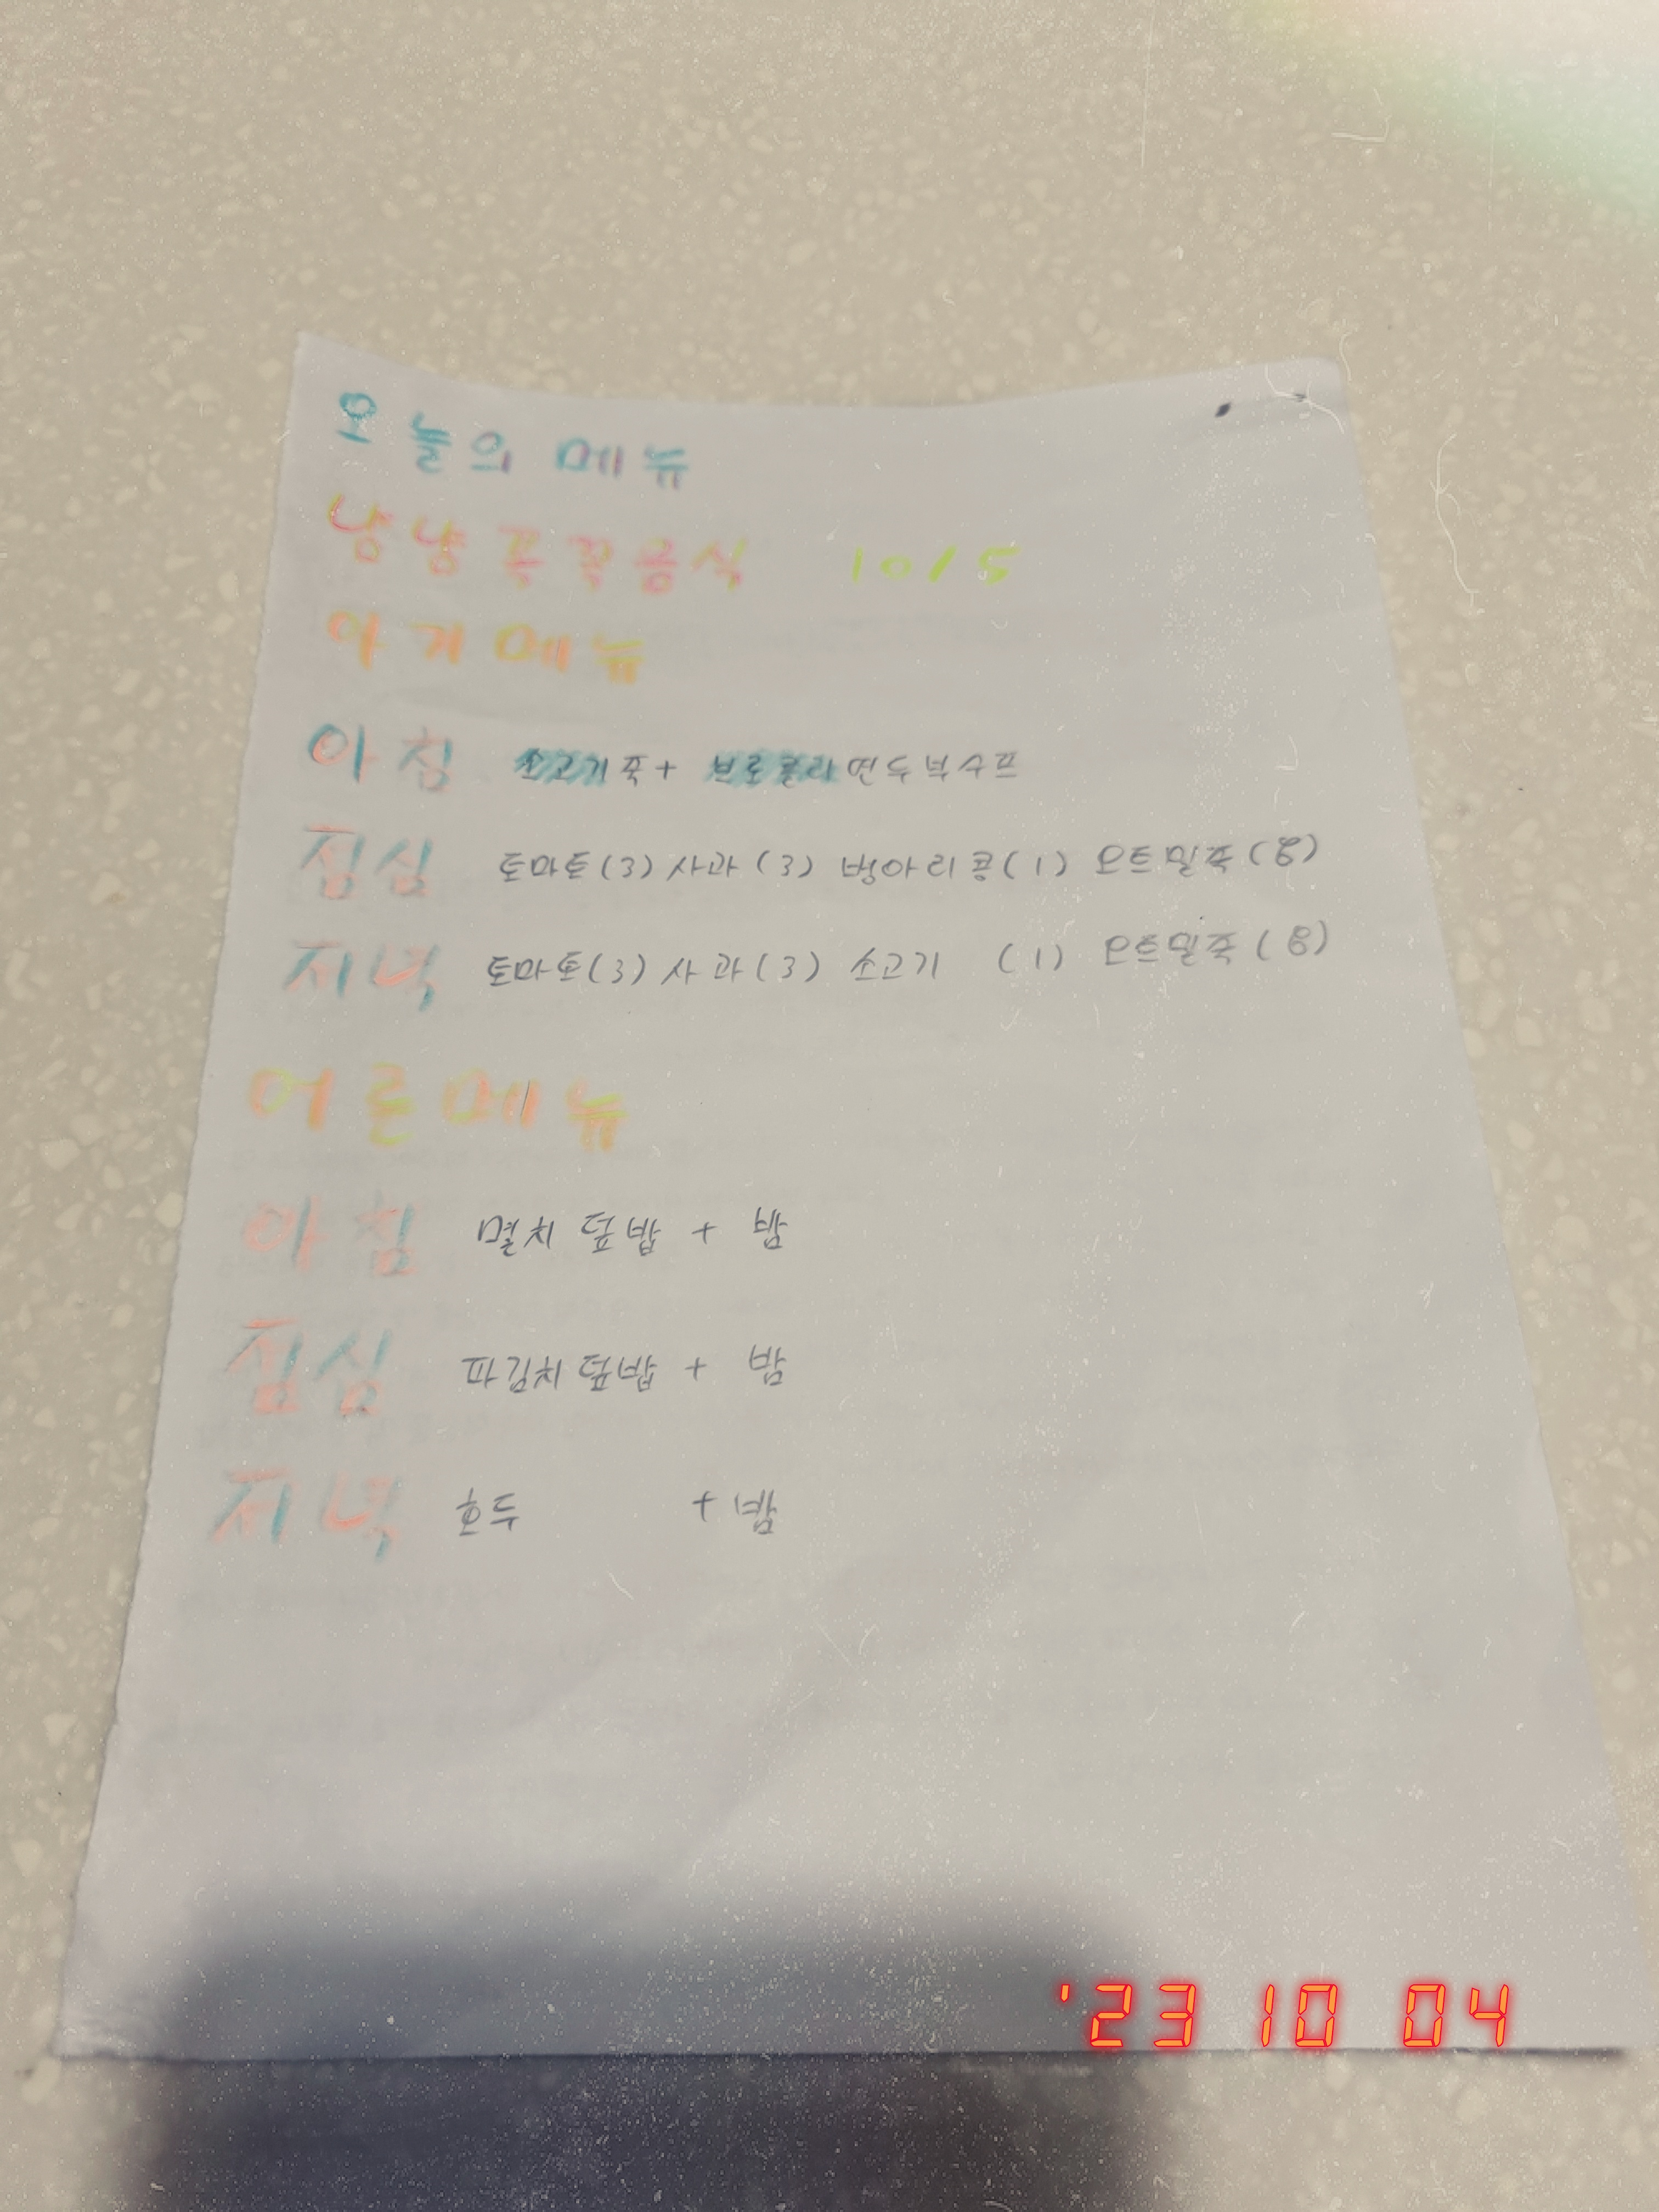 오늘의 메뉴
냠냠 쿡쿡음식 10/5
아기메뉴
아침 소고기죽+ 브로콜리연두부수프
점심 토마토(3) 사과(3) 병아리콩(1) 오트밀죽(8)
저녁 토마토(3) 사과(3) 소고기 (1) 오트밀죽(8)
어른메뉴
아침 멸치 덮밥 + 밤
점심 파김치덮밥 + 밤
저녁 호두 + 밤
'23 10 04